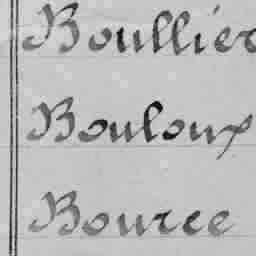 Boullier
Bouloux
Bource